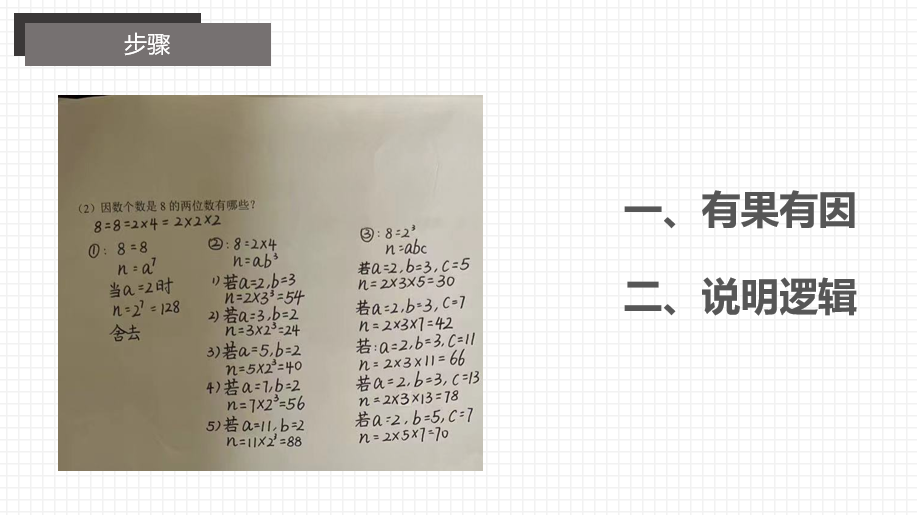 步骤
（2）因数个数是 8 的两位数有哪些？
8=8=2×4=2×2×2
①: 8=8
n=a⁷
当a=2时
n=2⁷=128
舍去
②: 8=2×4
n=ab³
1) 若a=2,b=3
n=2×3³=54
2) 若a=3,b=2
n=3×2³=24
3) 若a=5,b=2
n=5×2³=40
4) 若a=7,b=2
n=7×2³=56
5) 若a=11,b=2
n=11×2³=88
③: 8=2³
n=abc
若a=2,b=3,c=5
n=2×3×5=30
若a=2,b=3,c=7
n=2×3×7=42
若:a=2,b=3,c=11
n=2×3×11=66
若a=2,b=3,c=13
n=2×3×13=78
若a=2,b=5,c=7
n=2×5×7=70
一、有果有因
二、说明逻辑